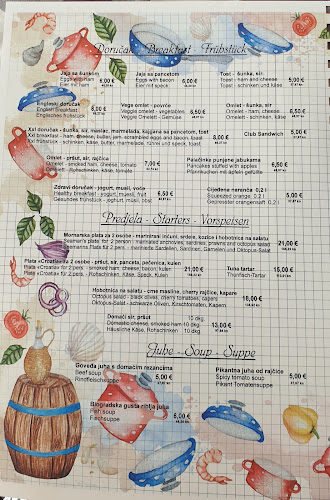 Doručak - Breakfast - Frühstück
Jaja sa šunkom
Eggs with ham
Eier mit ham
6,00 €
Jaja sa pancetom
Eggs with bacon
Eier mit speck
6,00 €
Tost - šunka, sir
Toast - ham, cheese
Toast - schinken und käse
5,00 €
Engleski doručak
English breakfast
Englisches frühstück
8,00 €
Vege omlet - povrće
Veggie omelet - vegetables
Veggie Omelett - Gemüse
6,50 €
Omlet - šunka, sir
Omelet - ham, cheese
Omelett - schinken, käse
6,50 €
Xxl doručak - šunka, sir, maslac, marmelada, kajgana sa pancetom, tost
Xxl breakfast - ham, cheese, butter, jam, scrambled eggs and bacon, toast
Xxl frühstück - schinken, käse, butter, marmelade, rührei und speck, toast
8,00 €
Club Sandwich
5,00 €
Omlet - pršut, sir, rajčica
Omelet - smoked ham, cheese, tomato
Omelett - Rohschinken, käse, tomate
7,00 €
Palačinka punjene jabukama
Pancakes stuffed with apples
Pfannkuchen mit äpfeln gefüllt
6,50 €
Zdravi doručak - jogurt, müsli, voće
Healthy breakfast - yogurt, müesli, fruit
Gesundes frühstück - joghurt, müsli, obst
6,50 €
Cijeđena neranča 0,2 l
Squeezed orange 0,2 l
Gepresster orangensaft 0,2 l
5,00 €
Predjela - Starters - Vorspeisen
Mornarska plata za 2 osobe - marinirani inćuni, srdele, kozice i hobotnica na salatu
Seaman's plate for 2 person - marinated anchovies, sardines, prawns and octopus salad
Marineplatte für 2 pers. - marinierte Sardellen, Sardinen, Garnelen und Octopus-Salat
21,00 €
Plata «Croatia» za 2 osobe - pršut, sir, panceta, pečenica, kulen
Plata «Croatia» for 2 pers - smoked ham, cheese, bacon, kulen
Plata «Croatia» für 2 pers. - Rohschinken, Käse, Speck, Kulen
21,00 €
Tuna tartar
Thunfisch-Tartar
15,00 €
Hobotnica na salatu - crne masline, cherry rajčice, kapare
Octopus salad - black olives, cherry tomatoes, capers
Oktopus-Salat - schwarze Oliven, Kirschtomaten, Kapern
16,00 €
Domaći sir, pršut 10 dkg.
Domestic cheese, smoked ham 10 dkg
Häusliche Käse, Rohschinken 10 dkg.
13,00 €
Juhe - Soup - Suppe
Goveđa juha s domaćim rezancima
Beef soup
Rindfleischsuppe
5,00 €
Pikantna juha od rajčice
Spicy tomato soup
Pikant Tomatensuppe
5,00 €
Biogradska gusta riblja juha
Fish soup
Fischsuppe
6,00 €